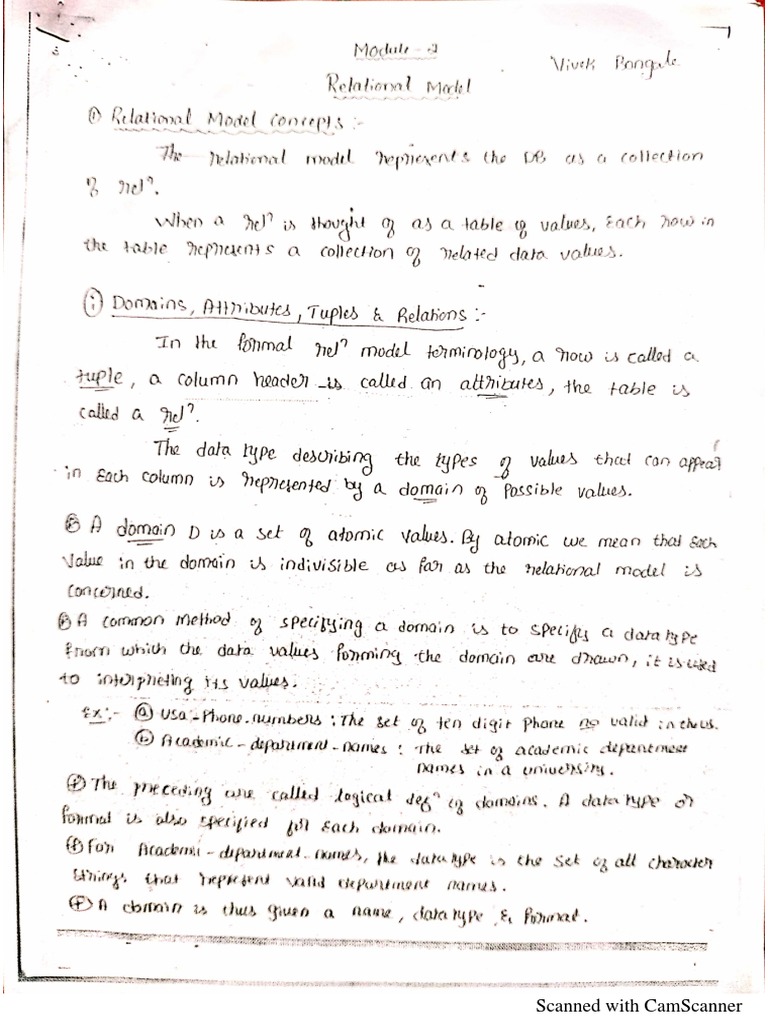 Module - 2
Vivek Bongale
Relational Model
① Relational Model Concepts :-
The relational model represents the DB as a collection
of relⁿ.
When a relⁿ is thought of as a table of values, Each row in
the table represents a collection of related data values.
ⓘ Domains, Attributes, Tuples & Relations :-
In the formal relⁿ model terminology, a row is called a
tuple, a column header is called an attributes, the table is
called a relⁿ.
The data type describing the types of values that can appear
in Each column is represented by a domain of possible values.
A domain D is a set of atomic values. By atomic we mean that Each
value in the domain is indivisible as far as the relational model is
concerned.
A common method of specifying a domain is to specify a data type
from which the data values forming the domain are drawn, it is used
to interpreting its values.
Ex:- ⓐ Usa-Phone-numbers : The set of ten digit phone no valid in the us.
ⓑ Academic-department-names : The set of academic department
names in a university.
The preceding are called logical defⁿ of domains. A data type or
format is also specified for Each domain.
For Academi-department-names, the datatype is the set of all character
strings that represent valid department names.
A domain is thus given a name, data type & format.
Scanned with CamScanner